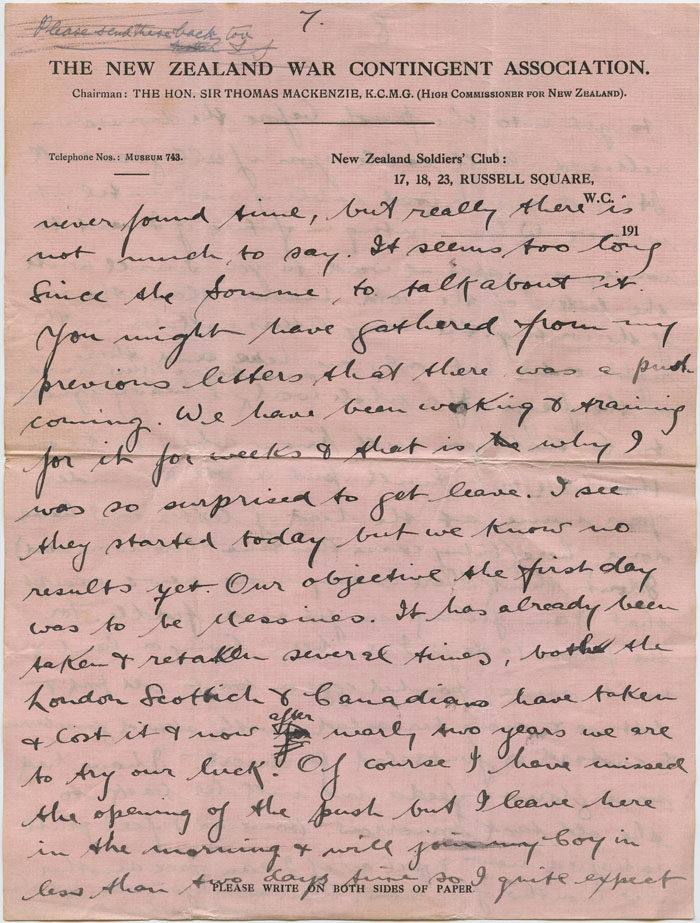 7.
Please send these back too
THE NEW ZEALAND WAR CONTINGENT ASSOCIATION.
Chairman: THE HON. SIR THOMAS MACKENZIE, K.C.M.G. (HIGH COMMISSIONER FOR NEW ZEALAND).
Telephone Nos.: MUSEUM 743.
New Zealand Soldiers' Club:
17, 18, 23, RUSSELL SQUARE,
W.C.
191
never found time, but really there is
not much to say. It seems too long
since the Somme, to talk about it.
You might have gathered from my
previous letters that there was a push
coming. We have been working & training
for it for weeks & that is why I
was so surprised to get leave. I see
they started today but we know no
results yet. Our objective the first day
was to be Messines. It has already been
taken & retaken several times, both the
London Scottich & Canadians have taken
& lost it & now after nearly two years we are
to try our luck. Of course I have missed
the opening of the push but I leave here
in the morning & will join my Coy in
less than two days time so I quite expect
PLEASE WRITE ON BOTH SIDES OF PAPER